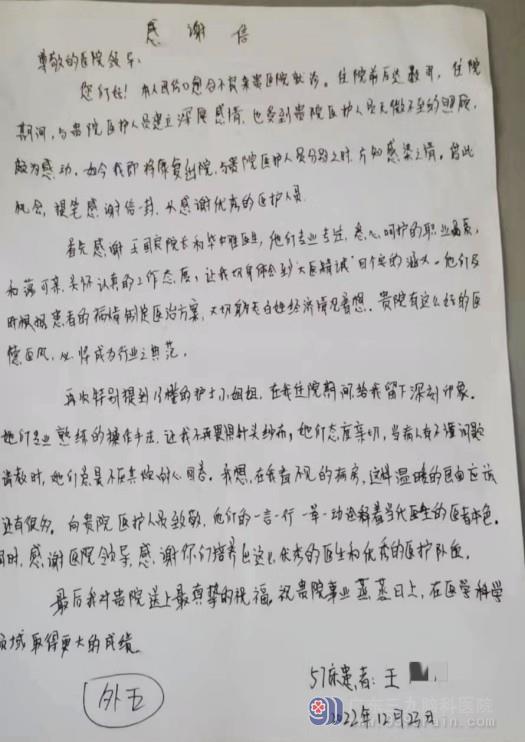 感谢信
尊敬的医院领导:
您们好!本人因伤口愈合不良来贵医院就诊。住院前后处数周,住院
期间,与贵院医护人员建立深厚感情,也受到贵院医护人员无微不至的照顾,
颇为感动。如今我即将康复出院,与贵院医护人员分别之时,方知感柒之情。借此
机会,提笔感谢信一封,以感谢优秀的医护人员.
首先感谢王国良院长和毕雄医生,他们专业专注,悉心呵护的职业品质,
和蔼可亲,关怀认真的工作态度,让我切身体会到"大医精诚"四个字的涵义。他们
时根据患者的病情制定医治方案,又切身为患者经济情况着想。贵院有这么好的医
德医风,必将成为行业之典范。
再次特别提到13楼的护士小姐姐,在我住院期间给我留下深刻印象。
她们专业熟练的操作手法,让我不再畏惧针头纱布,她们态度亲切,当病人有不懂问题
请教时,她们总是不厌其烦的耐心回答。我想,在我看不见的病房,这样温暖的画面应该
还有很多。向贵院医护人员致敬,他们的一言一行一举一动诠释着当代医生的医者本色。
同时,感谢医院领导,感谢你们培养出这么优秀的医生和优秀的医护队伍。
最后我对贵院送上最真挚的祝福,祝贵院事业蒸蒸日上,在医学科学
领域取得更大的成绩
57床患者:王
外五
2022年12月23日
三九脑科医院